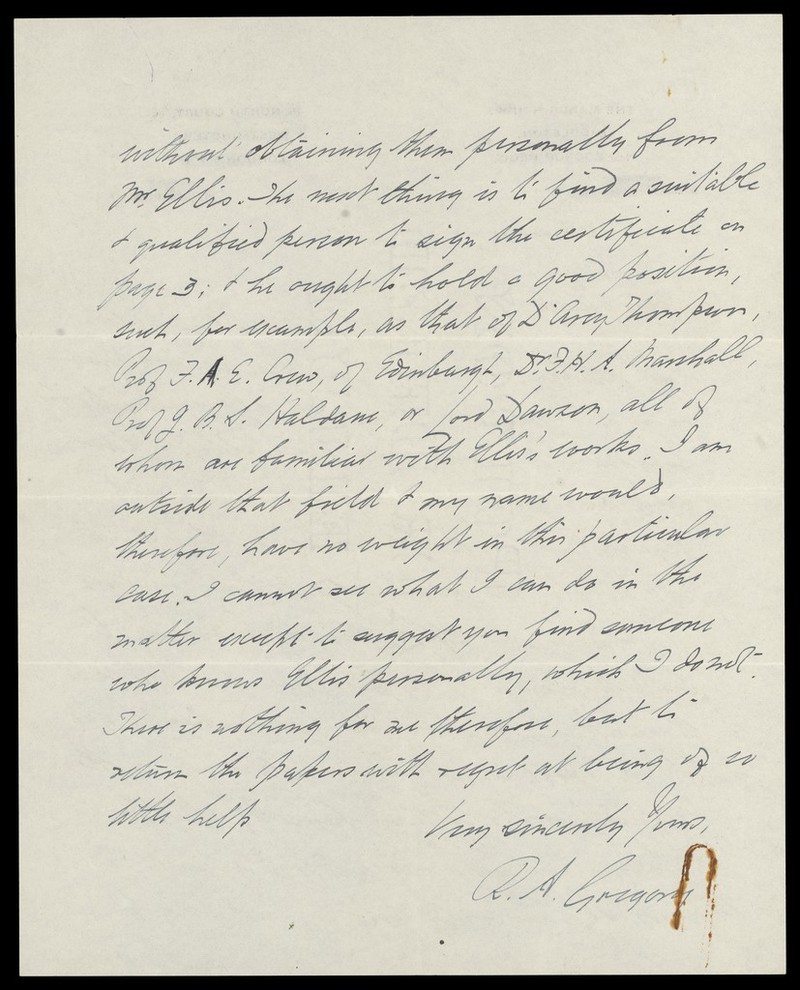 without obtaining them personally from
Mr. Ellis. The next thing is to find a suitable
& qualified person to sign the certificate on
page 3; & he ought to hold a good position,
such, for example, as that of D'Arcy Thompson,
Prof F. A. E. Crew, of Edinburgh, Dr. F. H. A. Marshall,
Prof J. B. S. Haldane, or Lord Dawson, all of
whom are familiar with Ellis's works. I am
outside that field & my name would,
therefore, have no weight in this particular
case. I cannot see what I can do in the
matter except to suggest you find someone
who knows Ellis personally, which I do not.
There is nothing for me therefore, but to
return the papers with regret at being of so
little help
Very sincerely Yours,
R. A. Gregory